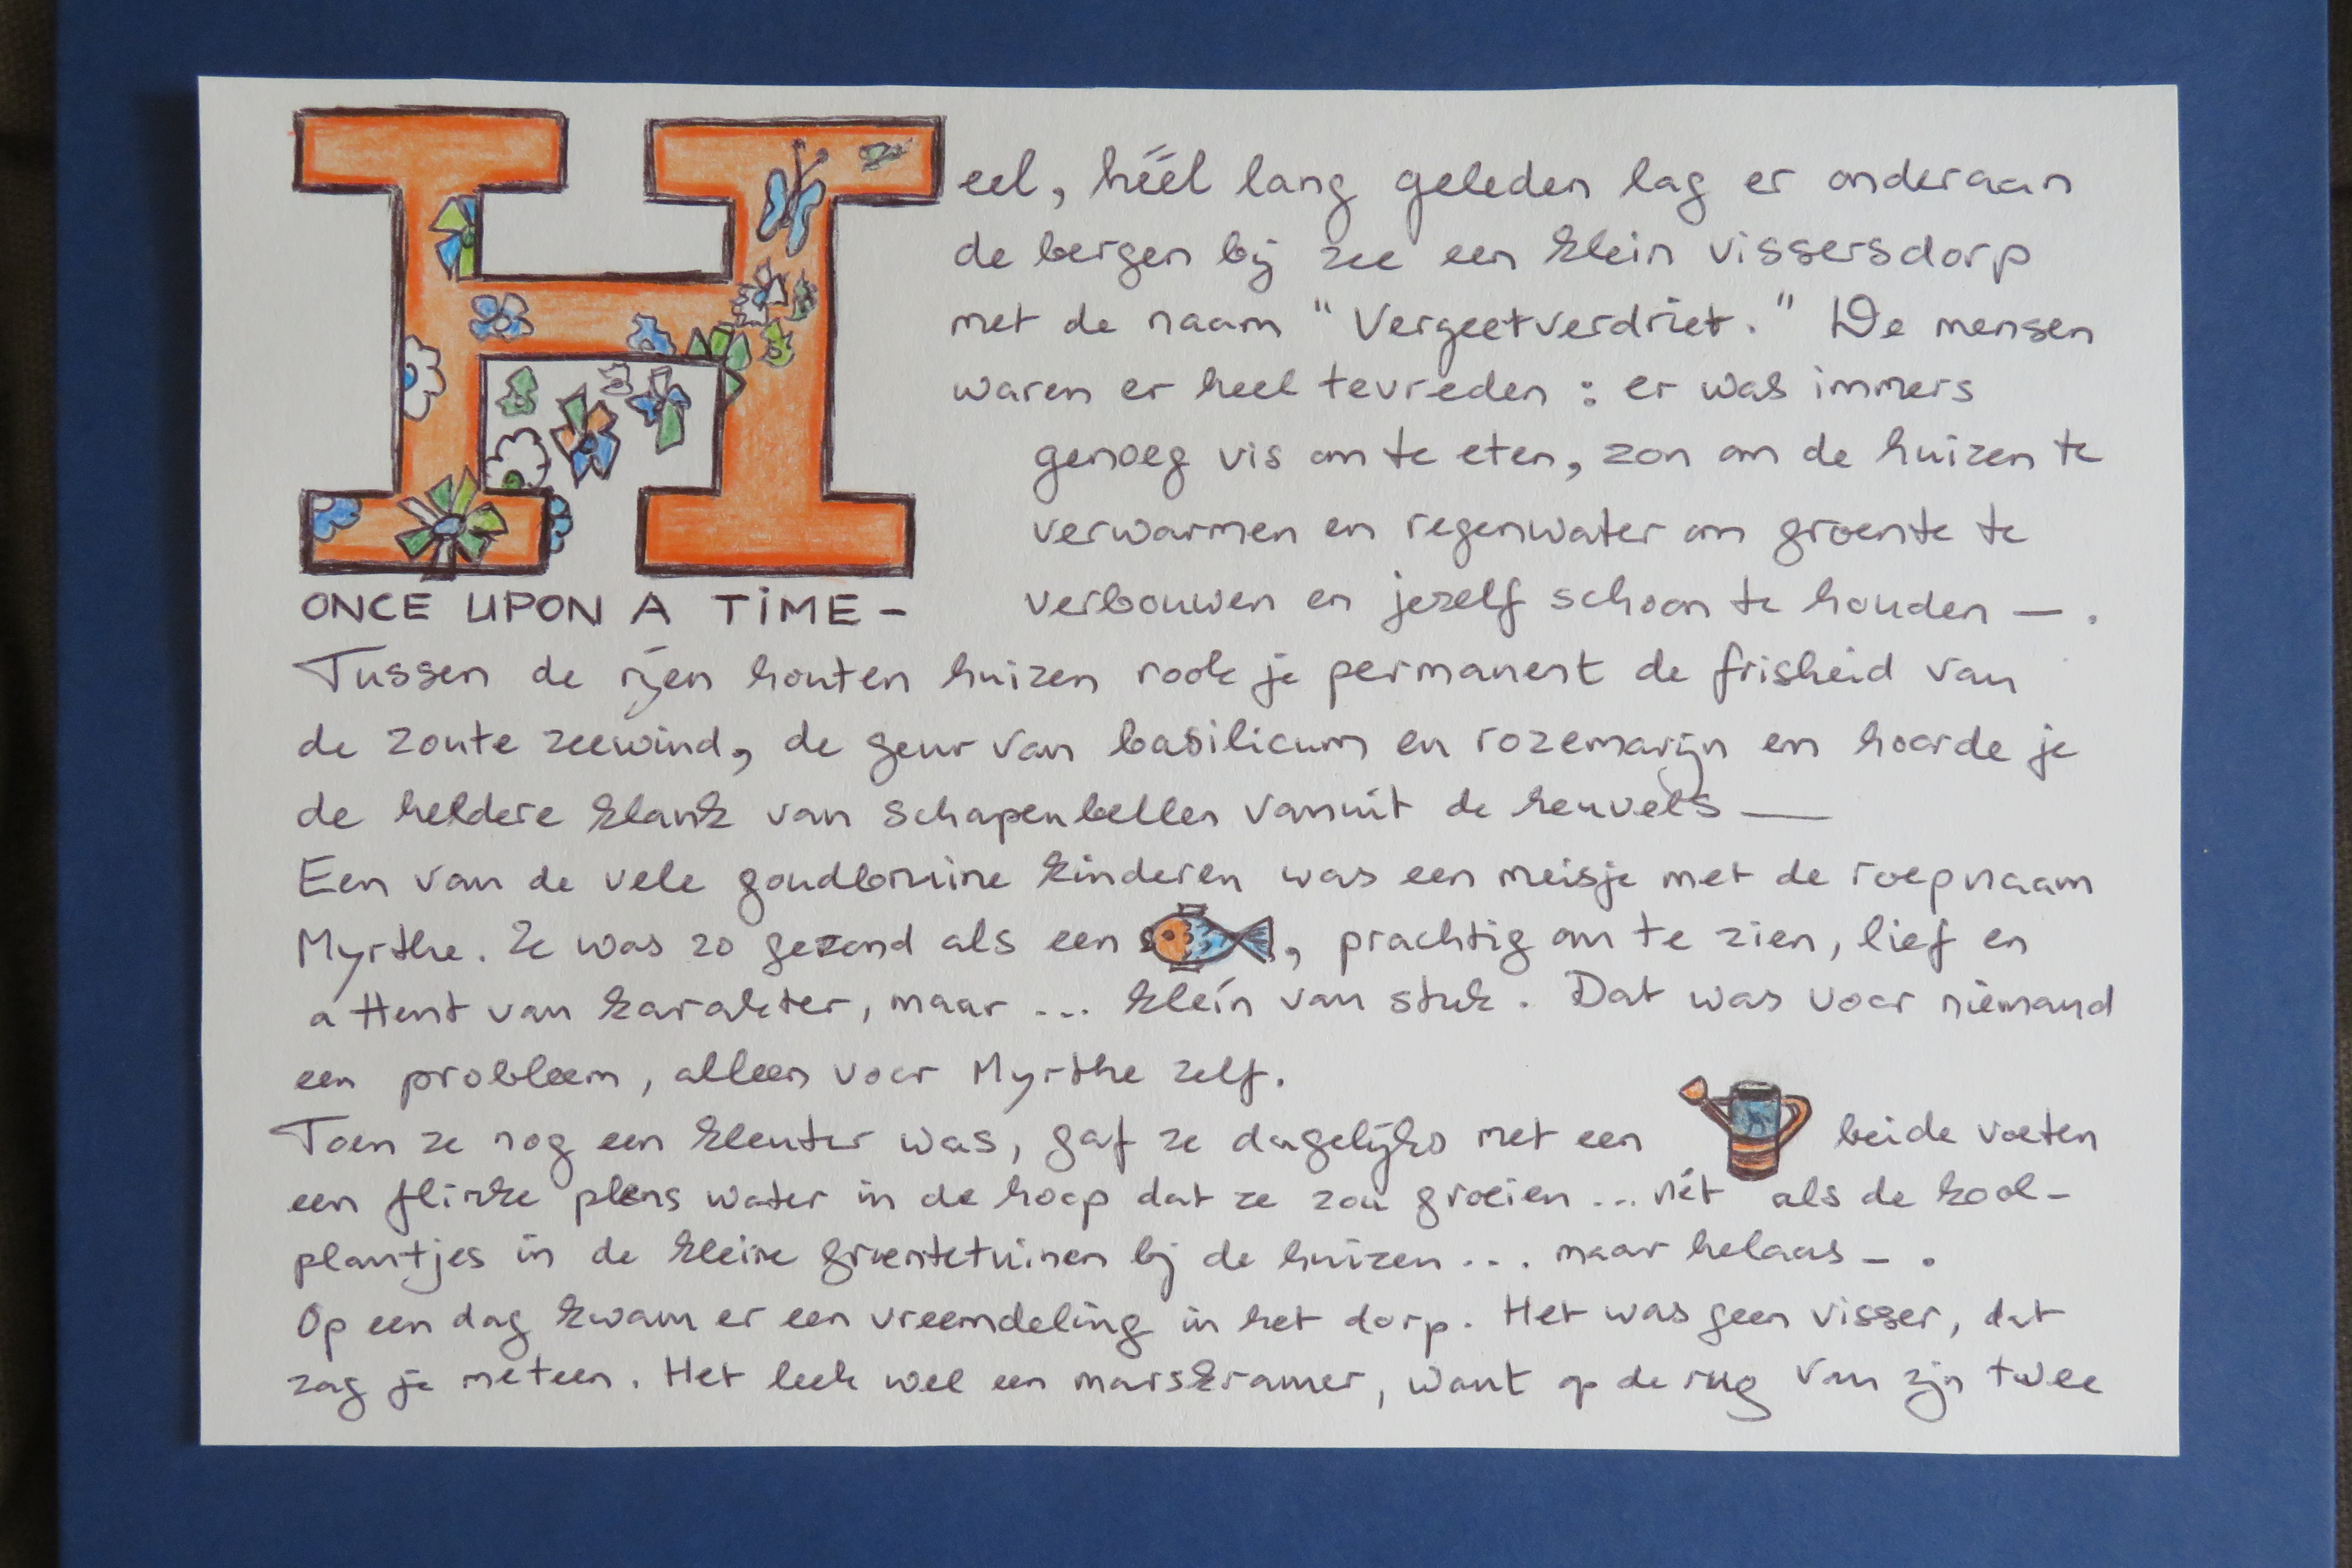 Heel, héél lang geleden lag er onderaan
de bergen bij zee een klein vissersdorp
met de naam "Vergeetverdriet." De mensen
waren er heel tevreden : er was immers
genoeg vis om te eten, zon om de huizen te
verwarmen en regenwater om groente te
verbouwen en jezelf schoon te houden — .
ONCE UPON A TIME -
Tussen de rijen houten huizen rook je permanent de frisheid van
de zoute zeewind, de geur van basilicum en rozemarijn en hoorde je
de heldere klank van schapenbellen vanuit de heuvels —
Een van de vele goudbruine kinderen was een meisje met de roepnaam
Myrthe. Ze was zo gezond als een , prachtig om te zien, lief en
attent van karakter, maar ... klein van stuk. Dat was voor niemand
een probleem, alleen voor Myrthe zelf.
Toen ze nog een kleuter was, gaf ze dagelijks met een beide voeten
een flinke plens water in de hoop dat ze zou groeien ... nét als de kool-
plantjes in de kleine groentetuinen bij de huizen ... maar helaas - .
Op een dag kwam er een vreemdeling in het dorp. Het was geen visser, dat
zag je meteen. Het leek wel een marskramer, want op de rug van zijn twee